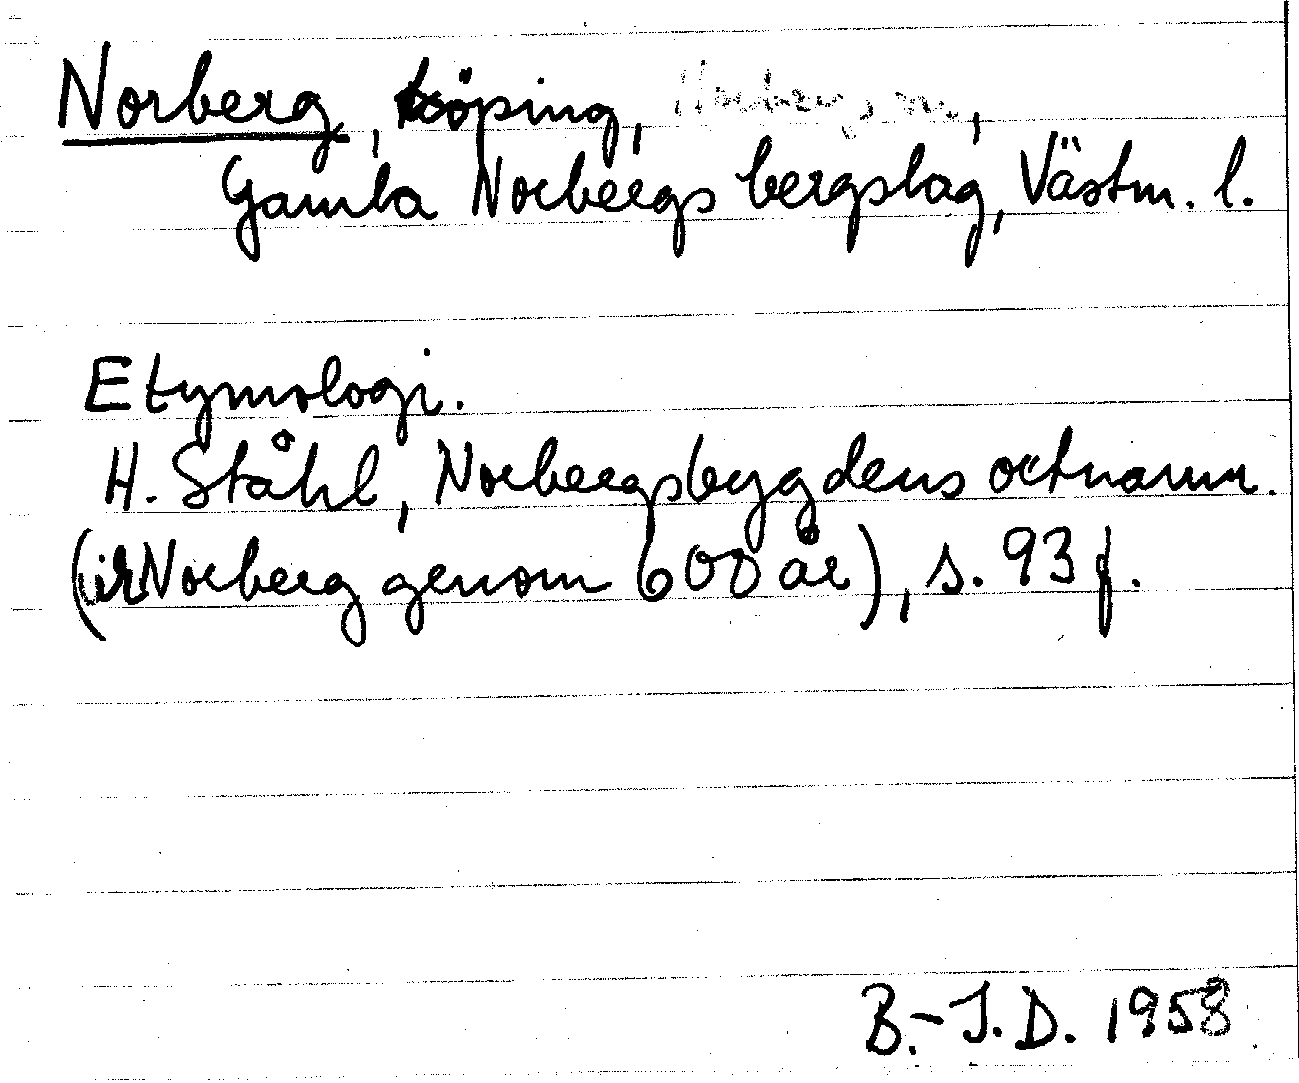 Norberg, köping, Norbergs sn,
Gamla Norbergs bergslag, Västm. l.
Etymologi.
H. Ståhl, Norbergsbygdens ortnamn.
(ur Norberg genom 600 år), s. 93 f.
B.-J.D. 1958